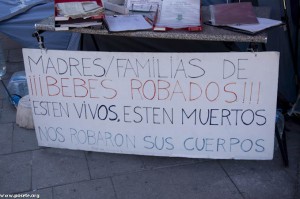 MADRES/FAMILIAS DE
¡¡¡BEBES ROBADOS!!!
ESTEN VIVOS, ESTEN MUERTOS
NOS ROBARON SUS CUERPOS
www.posete.org